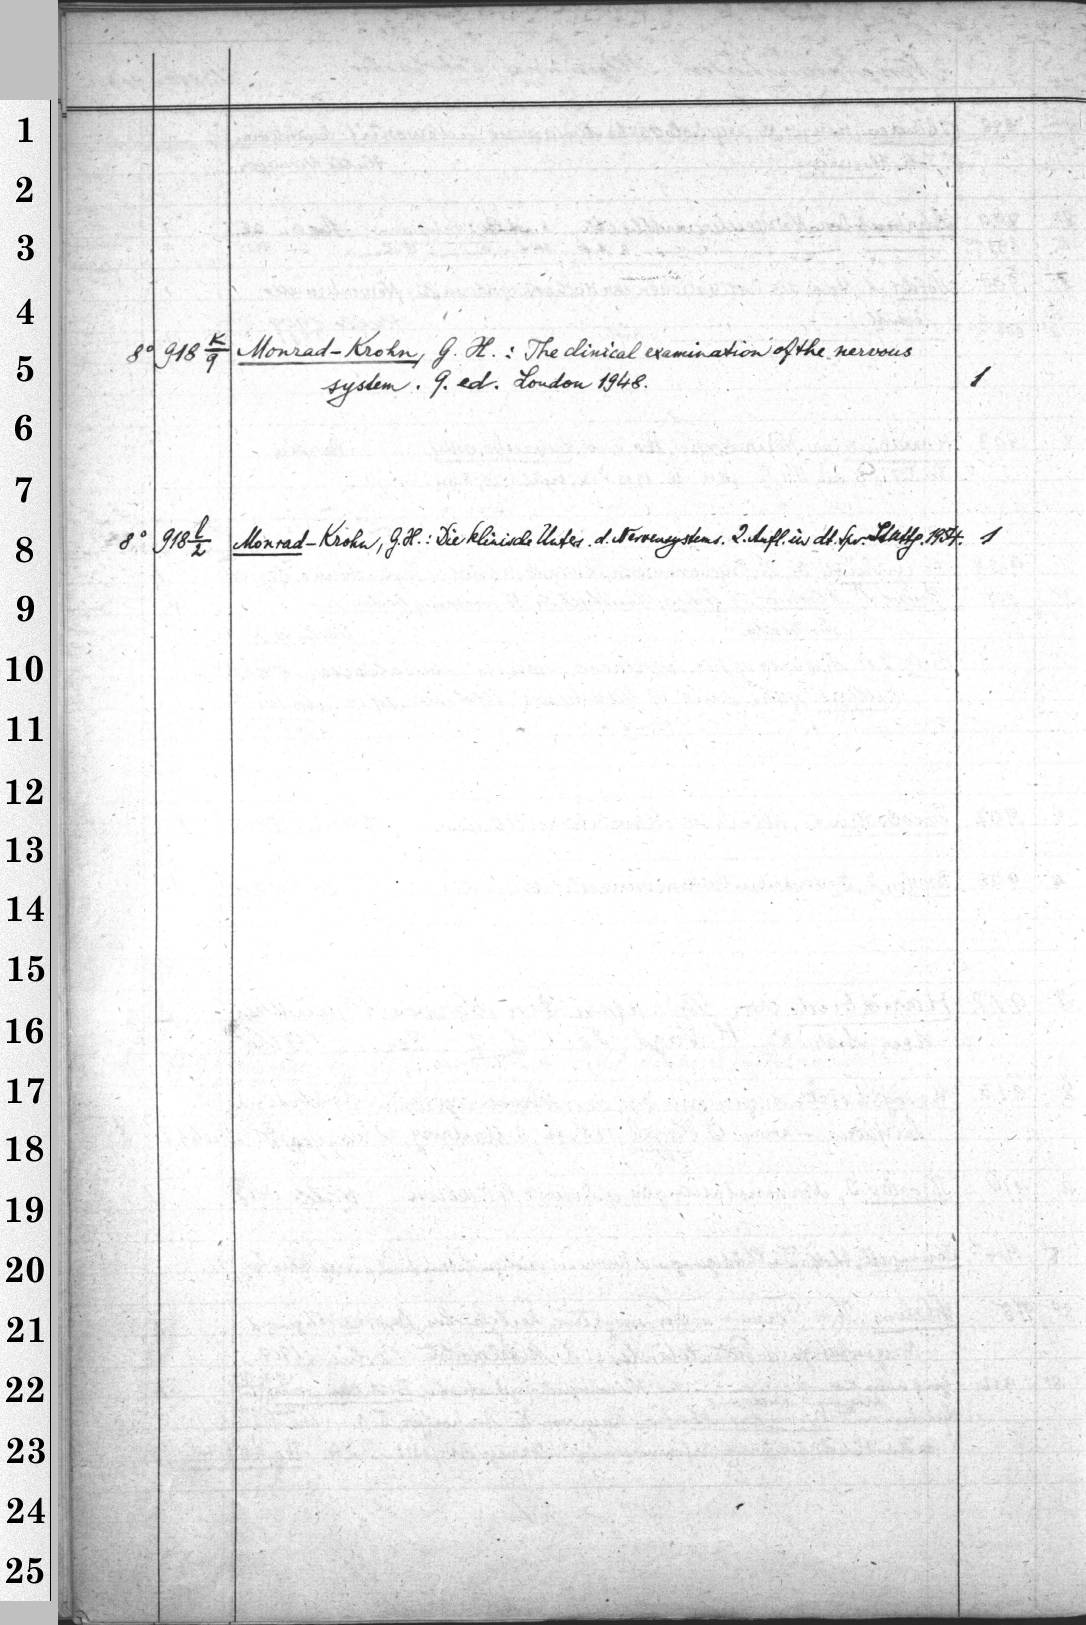 1
2
3
4
8° 918 K/9 Monrad-Krohn, G. H.: The clinical examination of the nervous
5
system. 9. ed. London 1948. 1
6
7
8
8° 918 l/2 Monrad-Krohn, G.H.: Die klinische Unters. d. Nervensystems. 2. Aufl. in dt. Spr. Stuttg. 1954. 1
9
10
11
12
13
14
15
16
17
18
19
20
21
22
23
24
25